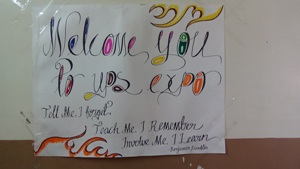 Welcome you
for yps expo
Tell Me. I forget.
Teach Me. I Remember
Involve Me. I Learn
- Benjamin Franklin